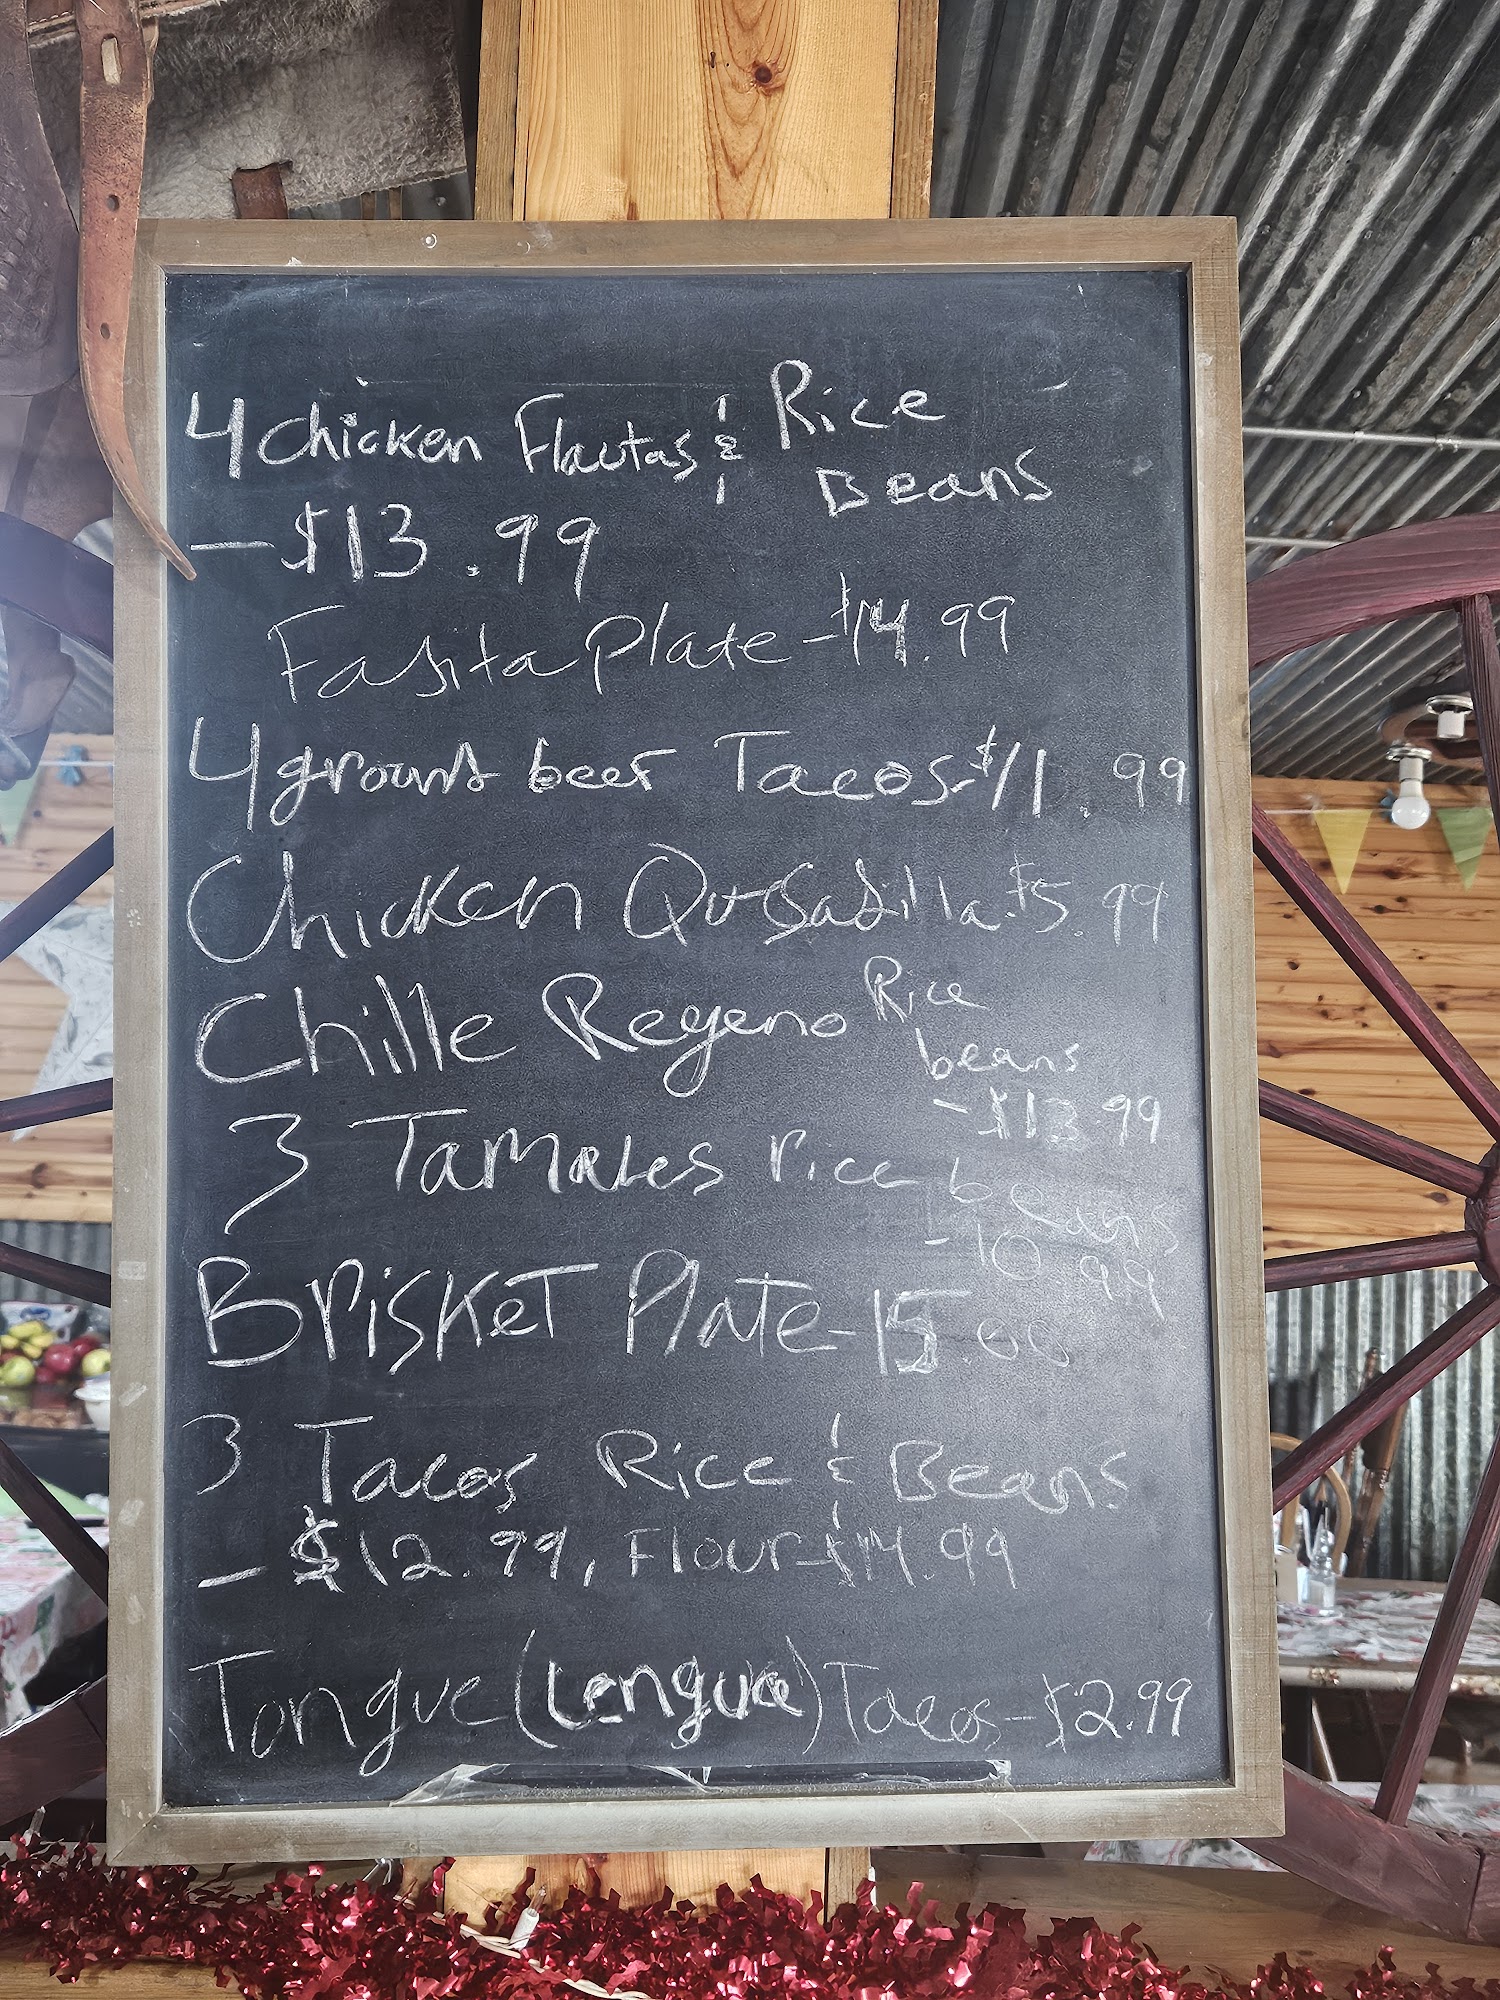 4 Chicken Flautas & Rice
Beans
- $13.99
Fajita Plate - $14.99
4 ground beef Tacos - $11.99
Chicken Qusadilla $5.99
Chille Reyeno Rice
beans
- $13.99
3 Tamales rice beans
- 10.99
Brisket Plate - 15.00
3 Tacos Rice & Beans
- $12.99, Flour - $14.99
Tongue (Lengua) Tacos - $2.99